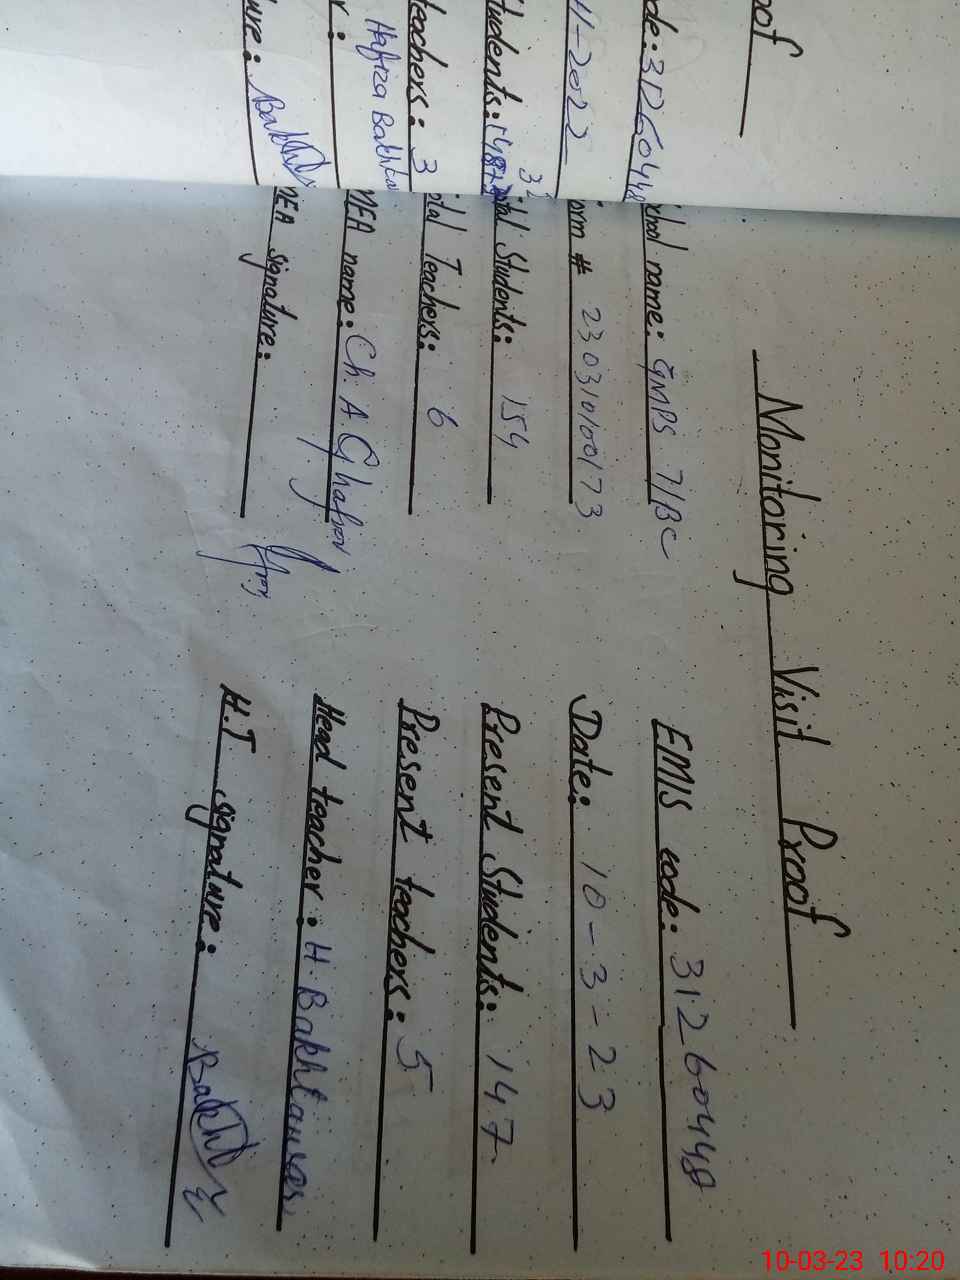 oof
de: 31260448
11-2022
tudents: 148+
32
teachers: 3
r: Hafiza Bakhta
ure: Bakht
Monitoring Visit Proof
chool name: GMPS 71/BC EMIS code: 31260448
orm # 230310100173 Date: 10-3-23
tal Students: 154 Present Students: 147
otal Teachers: 6 Present teachers: 5
MEA name: Ch. A Ghafoor Head teacher: H. Bakhtawar
MEA signature: H.T signature: Bakht
10-03-23 10:20